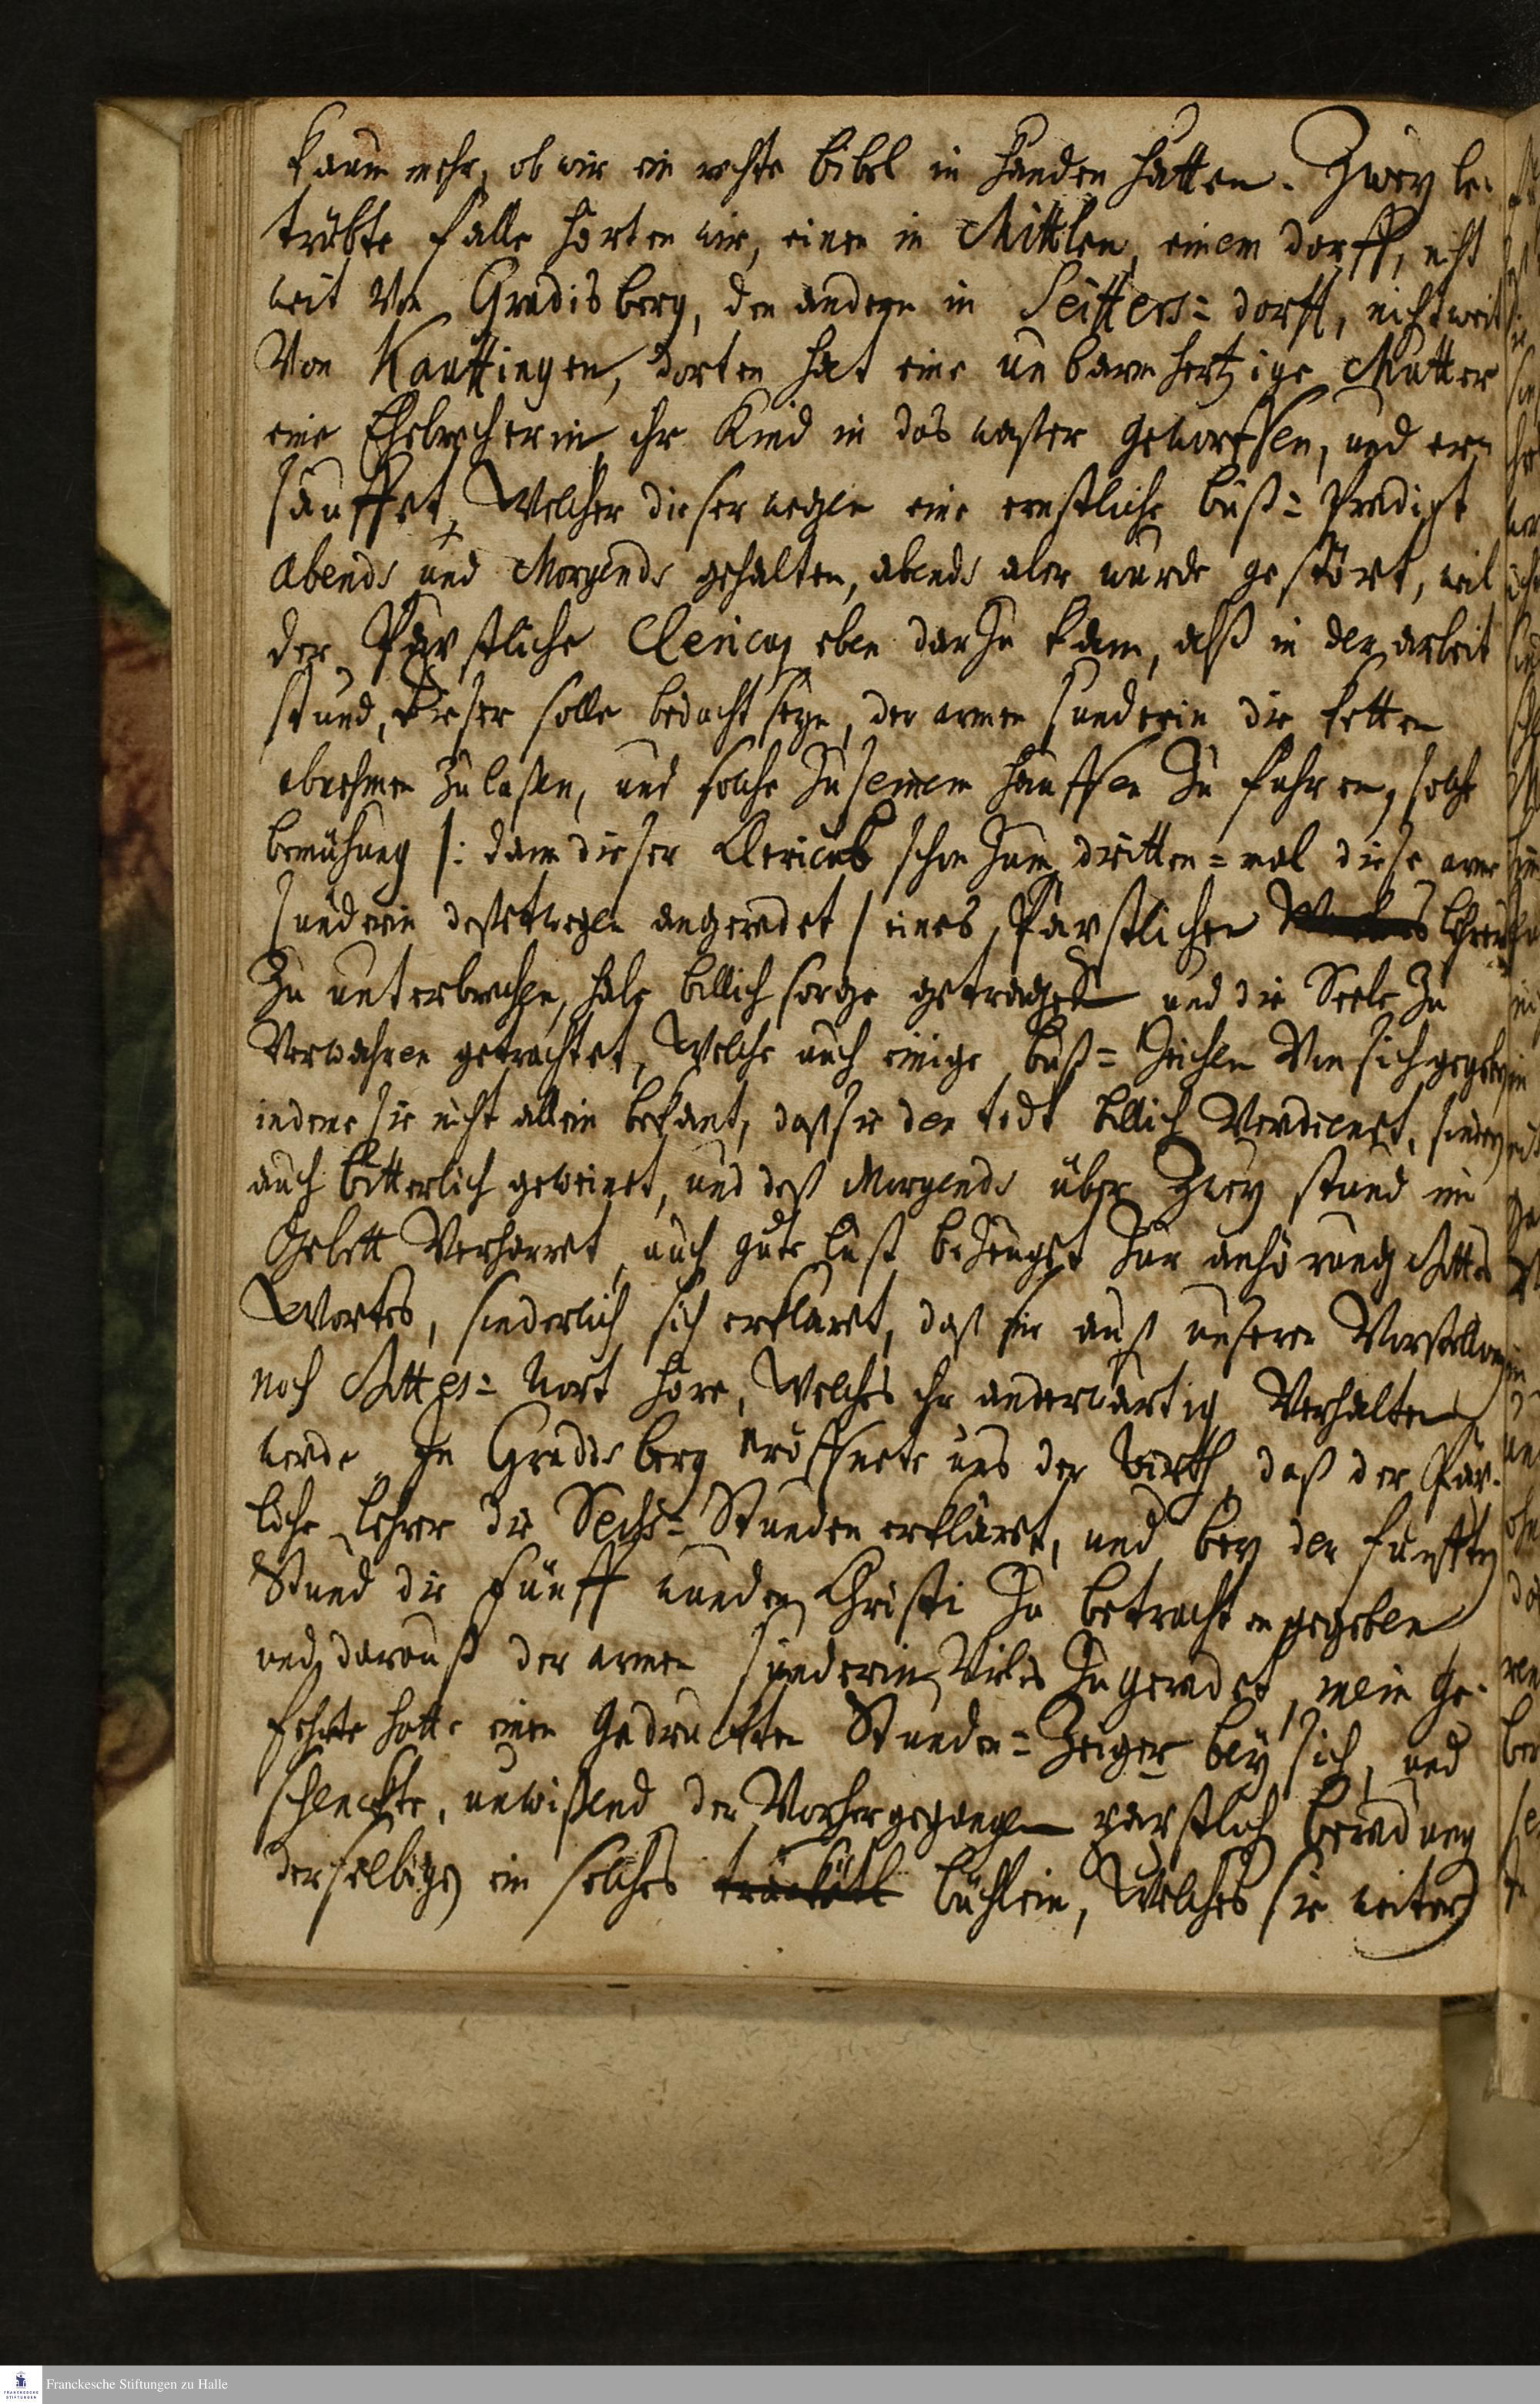 kaum mehr, ob wir ein rechte bibel in händen hätten. Zwey be-
trübte fälle hörten wir, einen in Mittlen, einem dorff, nicht
weit Von Gradisberg, den andern in Seiffers= dorff, nicht weit
Von Kauffingen, dorten hat eine unbarmhertzige Mutter
eine Ehebrecherin ihr Kind in das waßer geworffen, und er-
säuffet, Welcher dieser wegen eine ernstliche buß= Predigt
abends und Morgends gehalten, abends aber wurde gestört, weil
der Päpstliche Clericus eben darzu kam, alß in der arbeit
stund, dieser solle bedacht seyn, der armen sünderin die ketten
abnehmen zu laßen, und solche zu seinem hauffen zu führen, solche
bemühung /: dann dieser Clericus schon zum dritten=mal diese arme
sünderin deßetwegen angeredet / eines Päpstlichen Lehrers
zu unterbrechen, habe billich sorge getragen und die Seele zu
Verwahren getrachtet, Welche auch einige buß= Zeichen Von sich gegeben
indeme sie nicht allein bekant, daß sie den todt billich Verdienet, sondern
auch bitterlich geweinet, und deß Morgends über Zwey stund im
Gebett Verharret, auch gute lust bezeuget zur anhörung Gottes
Wortes, sonderlich sich erkläret, daß sie auß unseren Vorstellungen
noch Gottes= wort höre, Welches ihr anderwärtig Verhalten
werde. In Gradisberg eröffnete uns der wirth, daß der Päpst-
liche Lehrer die Sechs= Stunden erkläret, und bey der fünfften
Stund die fünff wunden Christi zu betrachten gegeben
und darauß der armen sünderin Vieles zugeredet, mein Ge-
fehrte hatte einen gedruckten Stunden= Zeiger bey sich, und
schenckte, unwißend der Vorhergegangen päpstlich beredung
derselbigen ein solches büchlein, Welches sie weiter
Franckesche Stiftungen zu Halle